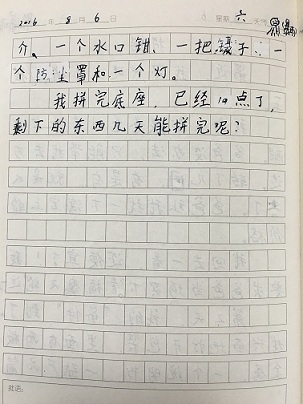 2016 年 8 月 6 日 星期 六 天气
介、一个水口钳、一把镊子、一
个防尘罩和一个灯。
我拼完底座，已经10点了，
剩下的东西几天能拼完呢？
批语：